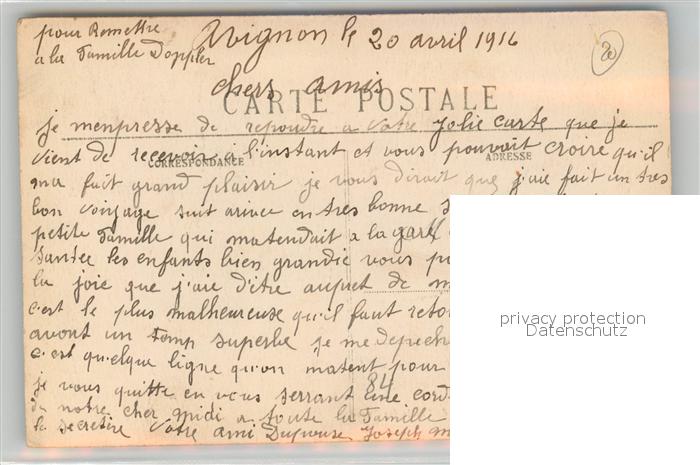 pour Remettre
a la Famille Doppler
Avignon le 20 avril 1916
20
chers amis
CARTE POSTALE
je m'enpresse de repondre a votre Jolie carte que je
CORRESPONDANCE
ADRESSE
vient de recevoir a l'instant et vous pouvait croire qu'il
ma fait grand plaisir je vous dirait que j'aie fait un tres
bon voyage suit arivee en tres bonne
petite Famille qui matendait a la gare
santée les enfants bien grandie vous
la joie que j'aie d'être aupret de
c'est le plus malheureuse qu'il faut
avont un temp superbe je me depech
c'est quelque ligne qu'on matent pour
84
je vous quitte en vous serrant une cord
de notre cher midi a toute la Famille
le secretere Votre ami Joseph
privacy protection
Datenschutz